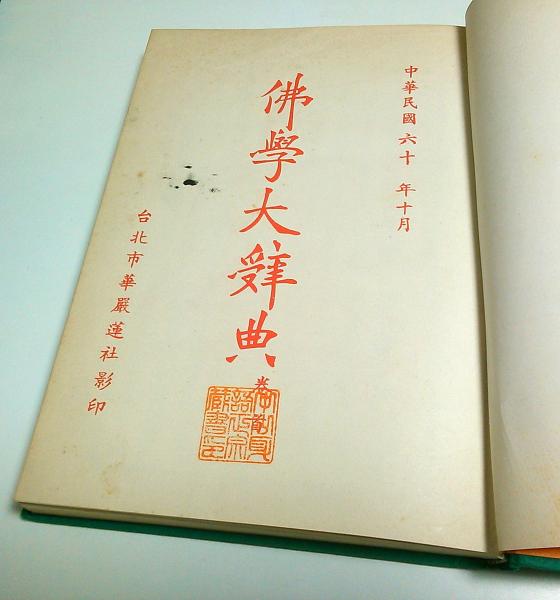 中華民國六十年十月
佛學大辭典
台北市華嚴蓮社影印